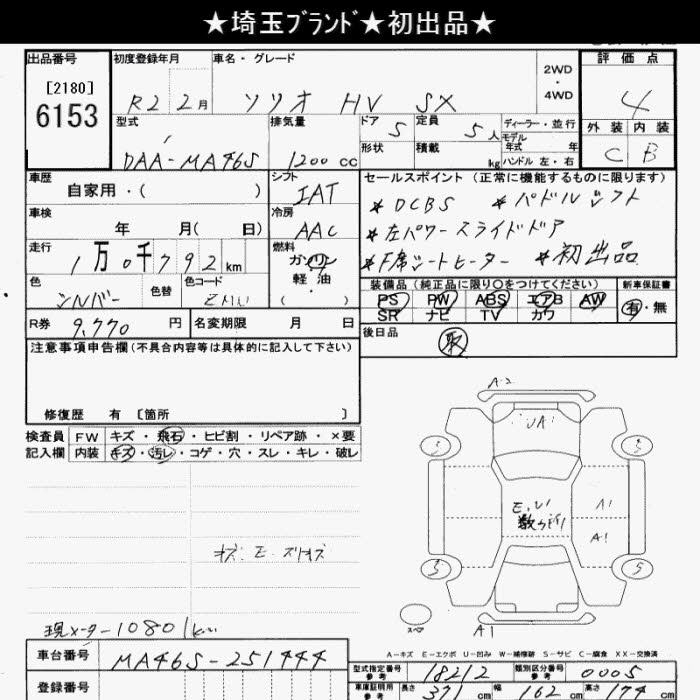 ★埼玉ﾌﾞﾗﾝﾄﾞ★初出品★
出品番号
[2180]
6153
初度登録年月
R2 2月
車名・グレード
ソリオ HV SX
2WD
・
4WD
評価点
4
外装 内装
C B
型式
DAA-MA46S
排気量
1200 cc
ドア 5
定員 5人
形状
積載 kg
ディーラー・並行
モデル
年式 年
ハンドル 左・右
車歴
自家用・( )
シフト
IAT
セールスポイント (正常に機能するものに限ります)
* DCBS * パドルシフト
* 左パワースライドドア
* F席シートヒーター * 初出品
車検
年 月( 日)
冷房
AAC
走行
1万0千792km
燃料
ガソリン
軽油・
( )
色
シルバー
色替
色コード
R券 9,770円
名変期限 月 日
装備品 (純正品に限り○をつけてください)
PS PW ABS エアB AW
SR ナビ TV カワ
新車保証書
有・無
後日品
取
注意事項申告欄(不具合内容等は具体的に記入して下さい)
修復歴 有 [箇所 ]
検査員 FW キズ・飛石・ヒビ割・リペア跡・×要
記入欄 内装 キズ・汚レ・コゲ・穴・スレ・キレ・破レ
A2
UA1
5 5
E.U
数ヶ所
A1
A1
5 5
スペア
A1
キズ E スリキズ
現メーター10801km
A－キズ E－エクボ U－凹み W－補修跡 S－サビ C－腐食 XX－交換済
車台番号 MA46S-251444
登録番号
型式指定番号
参考
18212
類別区分番号
参考
0005
車庫証明用
参考
長さ 371cm
幅 162cm
高さ 174cm